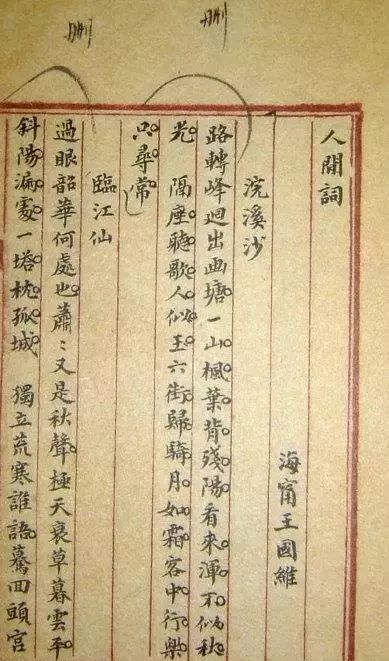 刪
刪
人間詞
海甯王國維
浣溪沙
路轉峰迴出画塘。一山楓葉背殘陽。看來渾不似秋
光。 隔座聽歌人似玉。六街歸騎月如霜。客中行樂
只尋常。
臨江仙
過眼韶華何處也。蕭〻又是秋聲。極天衰草暮雲平。
斜陽漏處。一塔枕孤城。 獨立荒寒誰語。驀回頭宮